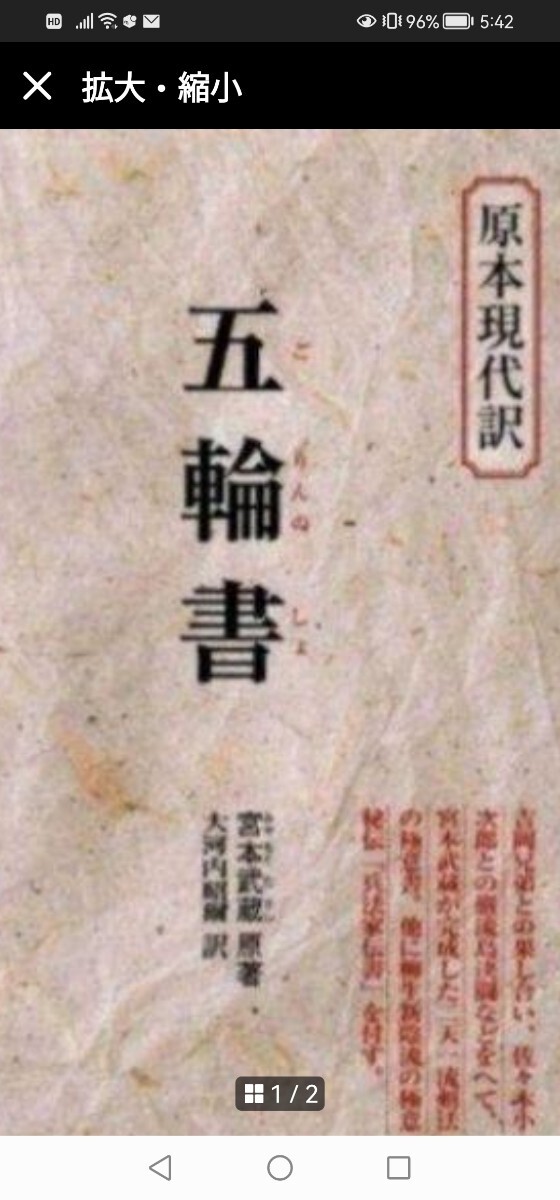 HD 96% 5:42
拡大・縮小
原本現代訳
五輪書
ごりんのしょ
吉岡兄弟との果し合い、佐々木小
次郎との巌流島決闘などをへて、
宮本武蔵が完成した二天一流剣法
の極意書。他に柳生新陰流の極意
秘伝『兵法家伝書』を付す。
宮本武蔵 原著
大河内昭爾 訳
1 / 2